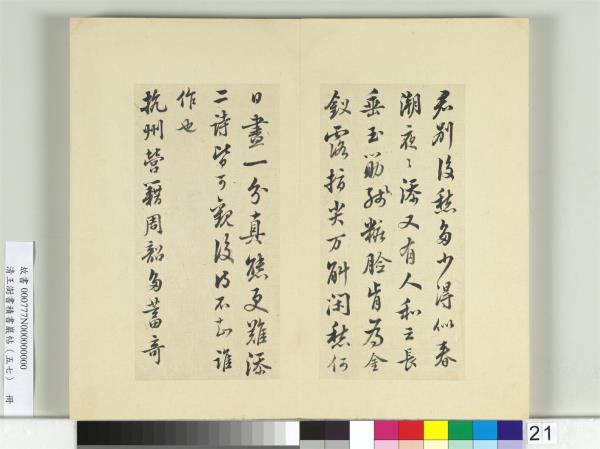 君別後愁多少得似春
潮夜〻添又有人和云長
垂玉筯殘粧臉肯為金
釵露指尖万斛閑愁何
日盡一分真態更難添
二詩皆可觀後詩不知誰
作也
杭州營籍周韶多蓄奇
故書000777N000000000
清王澍書積書巖帖（五七） 冊
21